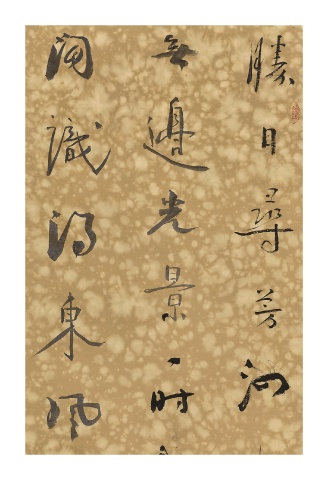 勝日尋芳泗
無邊光景一時
閒識得東風